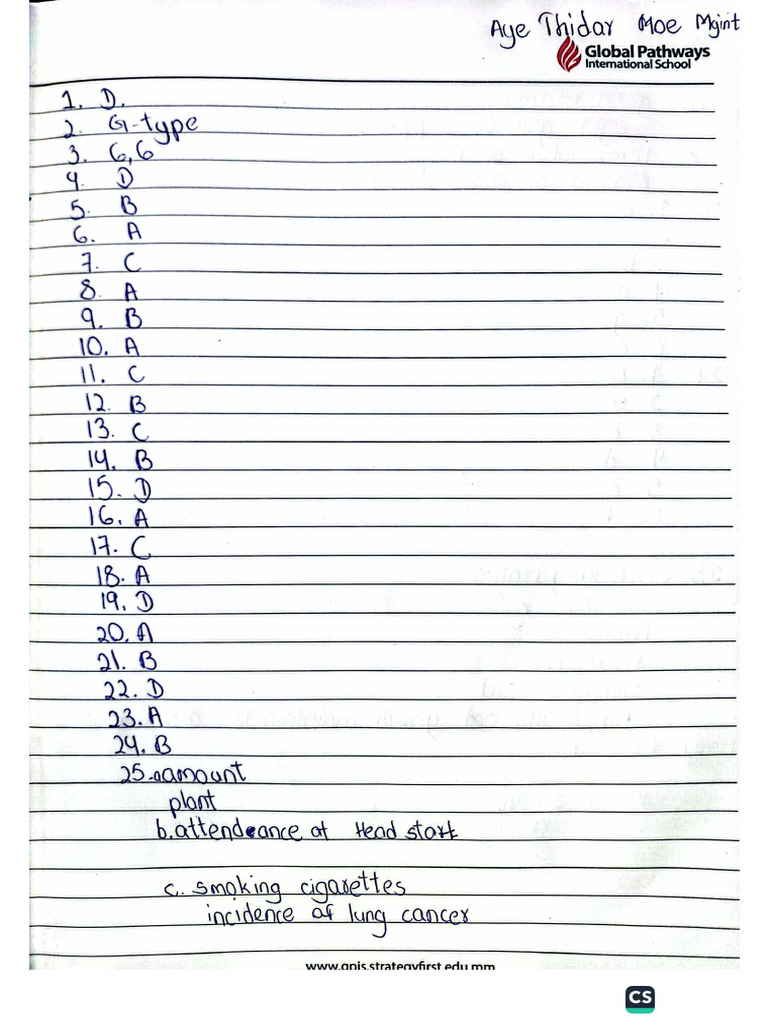 Aye Thidar Moe Mgint
Global Pathways
International School
1. D.
2. G-type
3. 6,6
4. D
5. B
6. A
7. C
8. A
9. B
10. A
11. C
12. B
13. C
14. B
15. D
16. A
17. C
18. A
19. D
20. A
21. B
22. D
23. A
24. B
25. a amount
plant
b. attendeance at Head start
c. smoking cigarettes
incidence of lung cancer
www.gpis.strategyfirst.edu.mm
CS